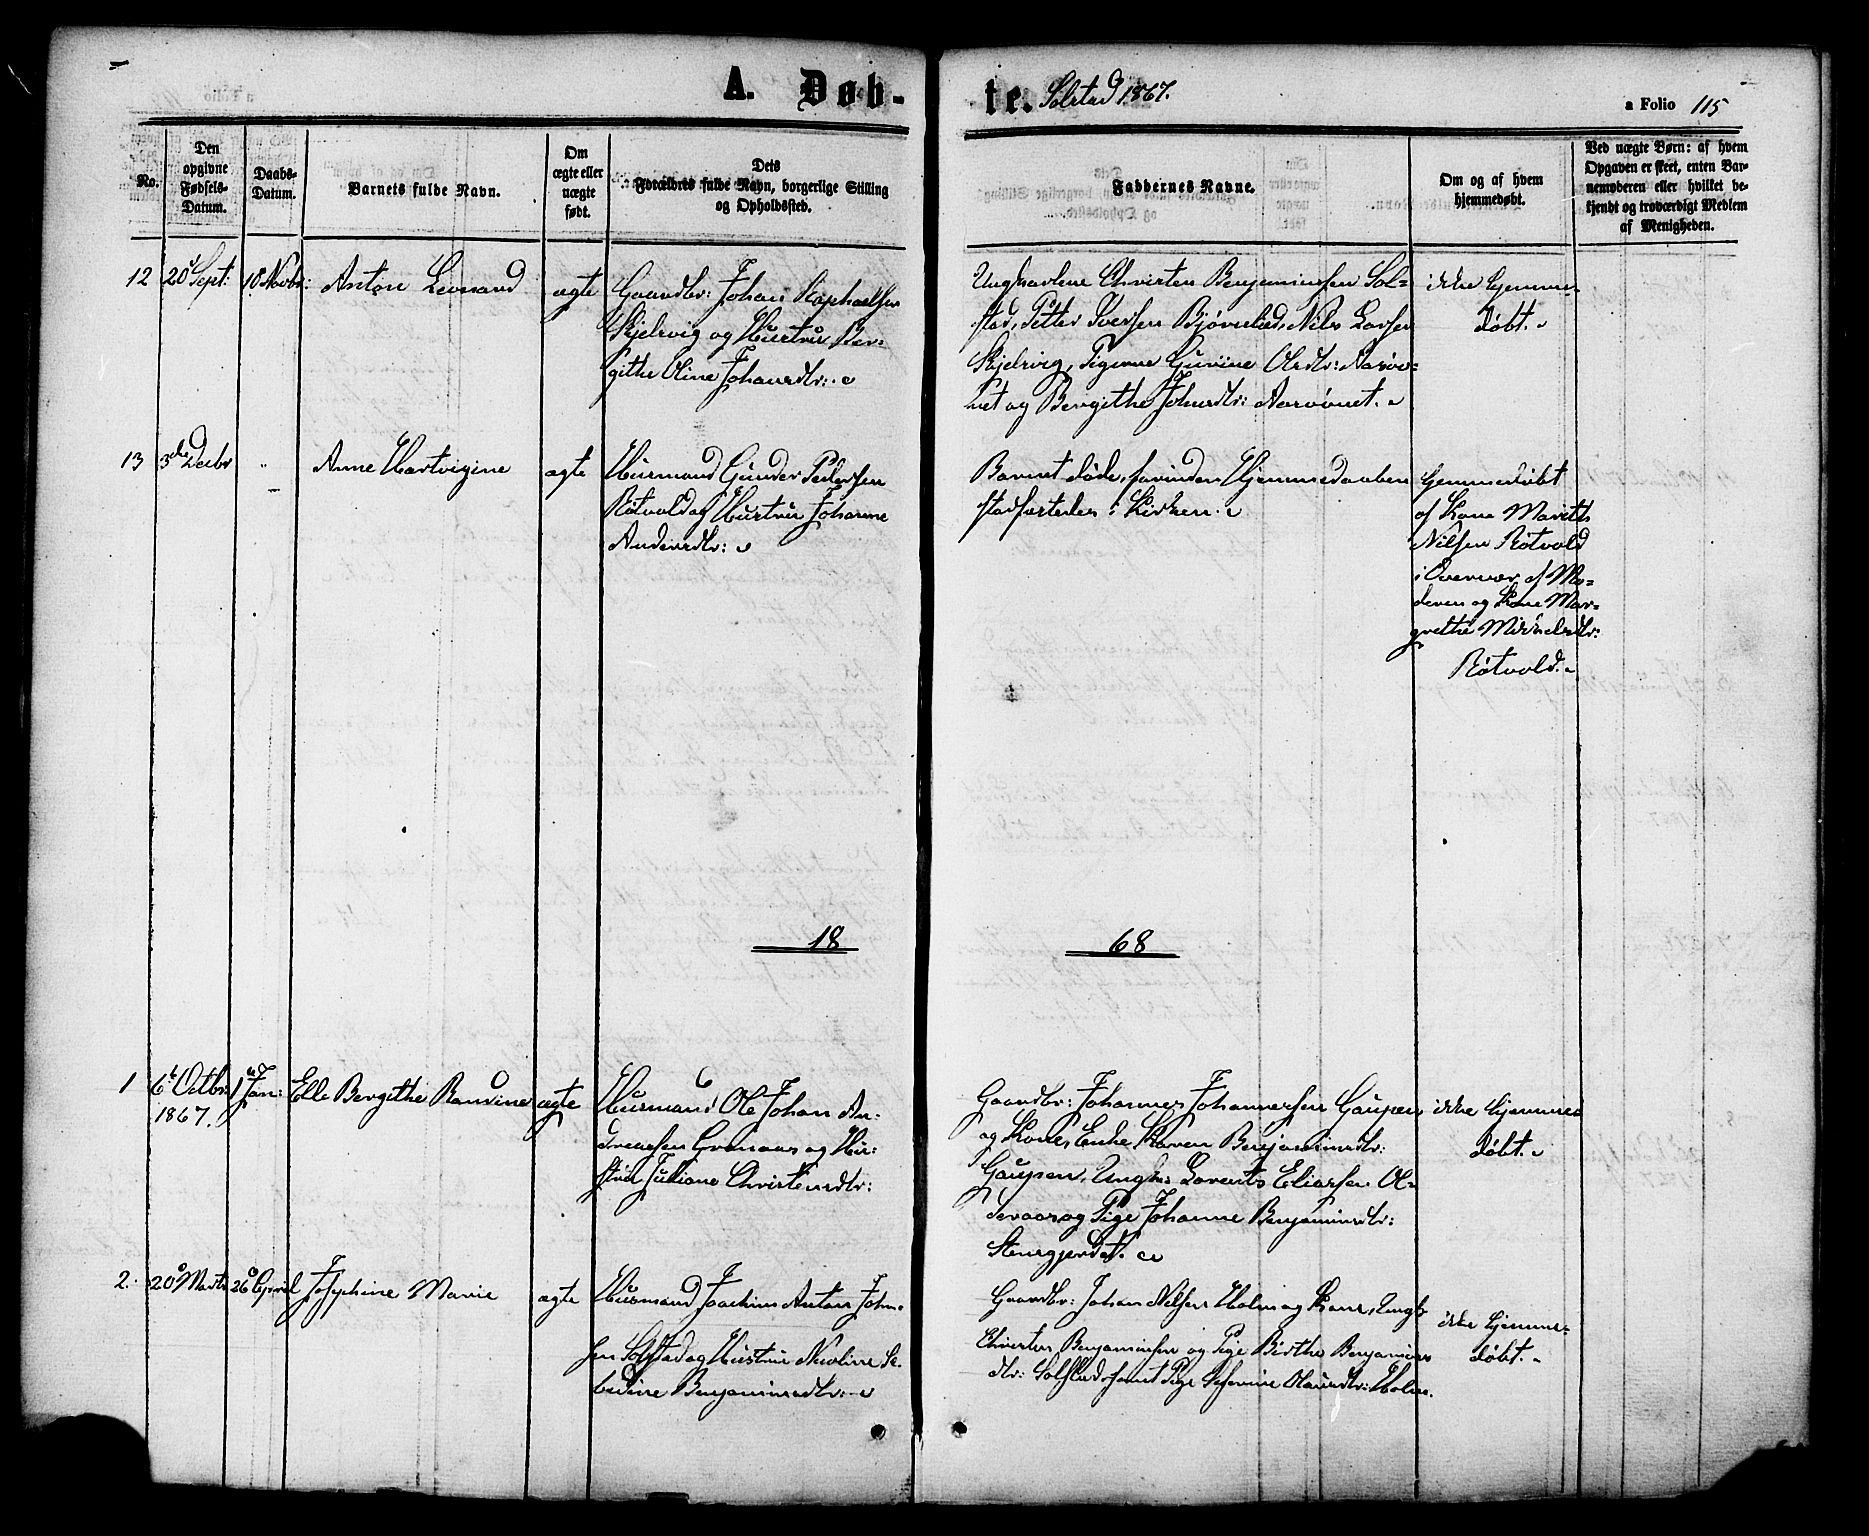 A. Døb-
te. Solstad 1867.
a Folio 115
No.
Den
opgivne
Fødsels-
Datum.
Daabs-
Datum.
Barnets fulde Navn.
Om
ægte eller
uægte
født.
Dets
Forældres fulde Navn, borgerlige Stilling
og Opholdssted.
Faddernes Navne.
Om og af hvem
hjemmedøbt.
Ved uægte Børn: af hvem
Opgaven er skeet, enten Bar-
nemoderen eller hvilket be-
kjendt og troværdigt Medlem
af Menigheden.
12 20 Sept: Novbr: Anton Leonard ægte
Gaardbr: Johan Raphaelsen
Skjelvig og Hustru Ber-
githe Oline Johansdtr:
Ungkarlene Christen Benjaminsen Sol-
stad, Petter Iversen Bjørnlied, Nils Larsen
Skjelvig, Pigerne Olsdtr:
og Bergithe Johnsdtr:
ikke hjemme-
døbt.
13 3die Decbr " Anne Hartvigine ægte
Huusmand Gunder Pedersen
Røtvold og Hustru Johanne
Andersdtr:
Barnet døde, forinden Hjemmedaaben
stadfæstedes i Kirken.
hjemmedøbt
af Kone Marith
Nilsen Røtvold
i Overvær af Mo-
deren og Kone Mar-
grethe Mikkelsdtr:
Røtvold.
18 68
1 6 Octbr: 1 Jan: Elle Bergithe Randine ægte
1867.
Huusmand Ole Johan An-
dreassen Grønaas og Hu-
stru Juliane Christensdtr:
Gaardbr: Johannes Johannessen Gaupen
og Kone, Enke Karen Benjaminsdtr:
Gaupen, Ungk: Lorents Eliassen Ol-
deraas og Pige Johanne Benjaminsdtr:
Stenegjerdet.
ikke hjemme
døbt.
2. 20 Marts 26 April Josephine Marie ægte
Huusmand Joachim Anton John-
sen Solstad og Hustru Nicoline Se-
Benjaminsdtr:
Gaardbr: Johan Nilsen Holm og Kone, Ungk:
Christen Benjaminsen og Pige Birthe Benjamins
dtr: Solstad samt Pige Olausdtr: Holm.
ikke hjemme-
døbt.